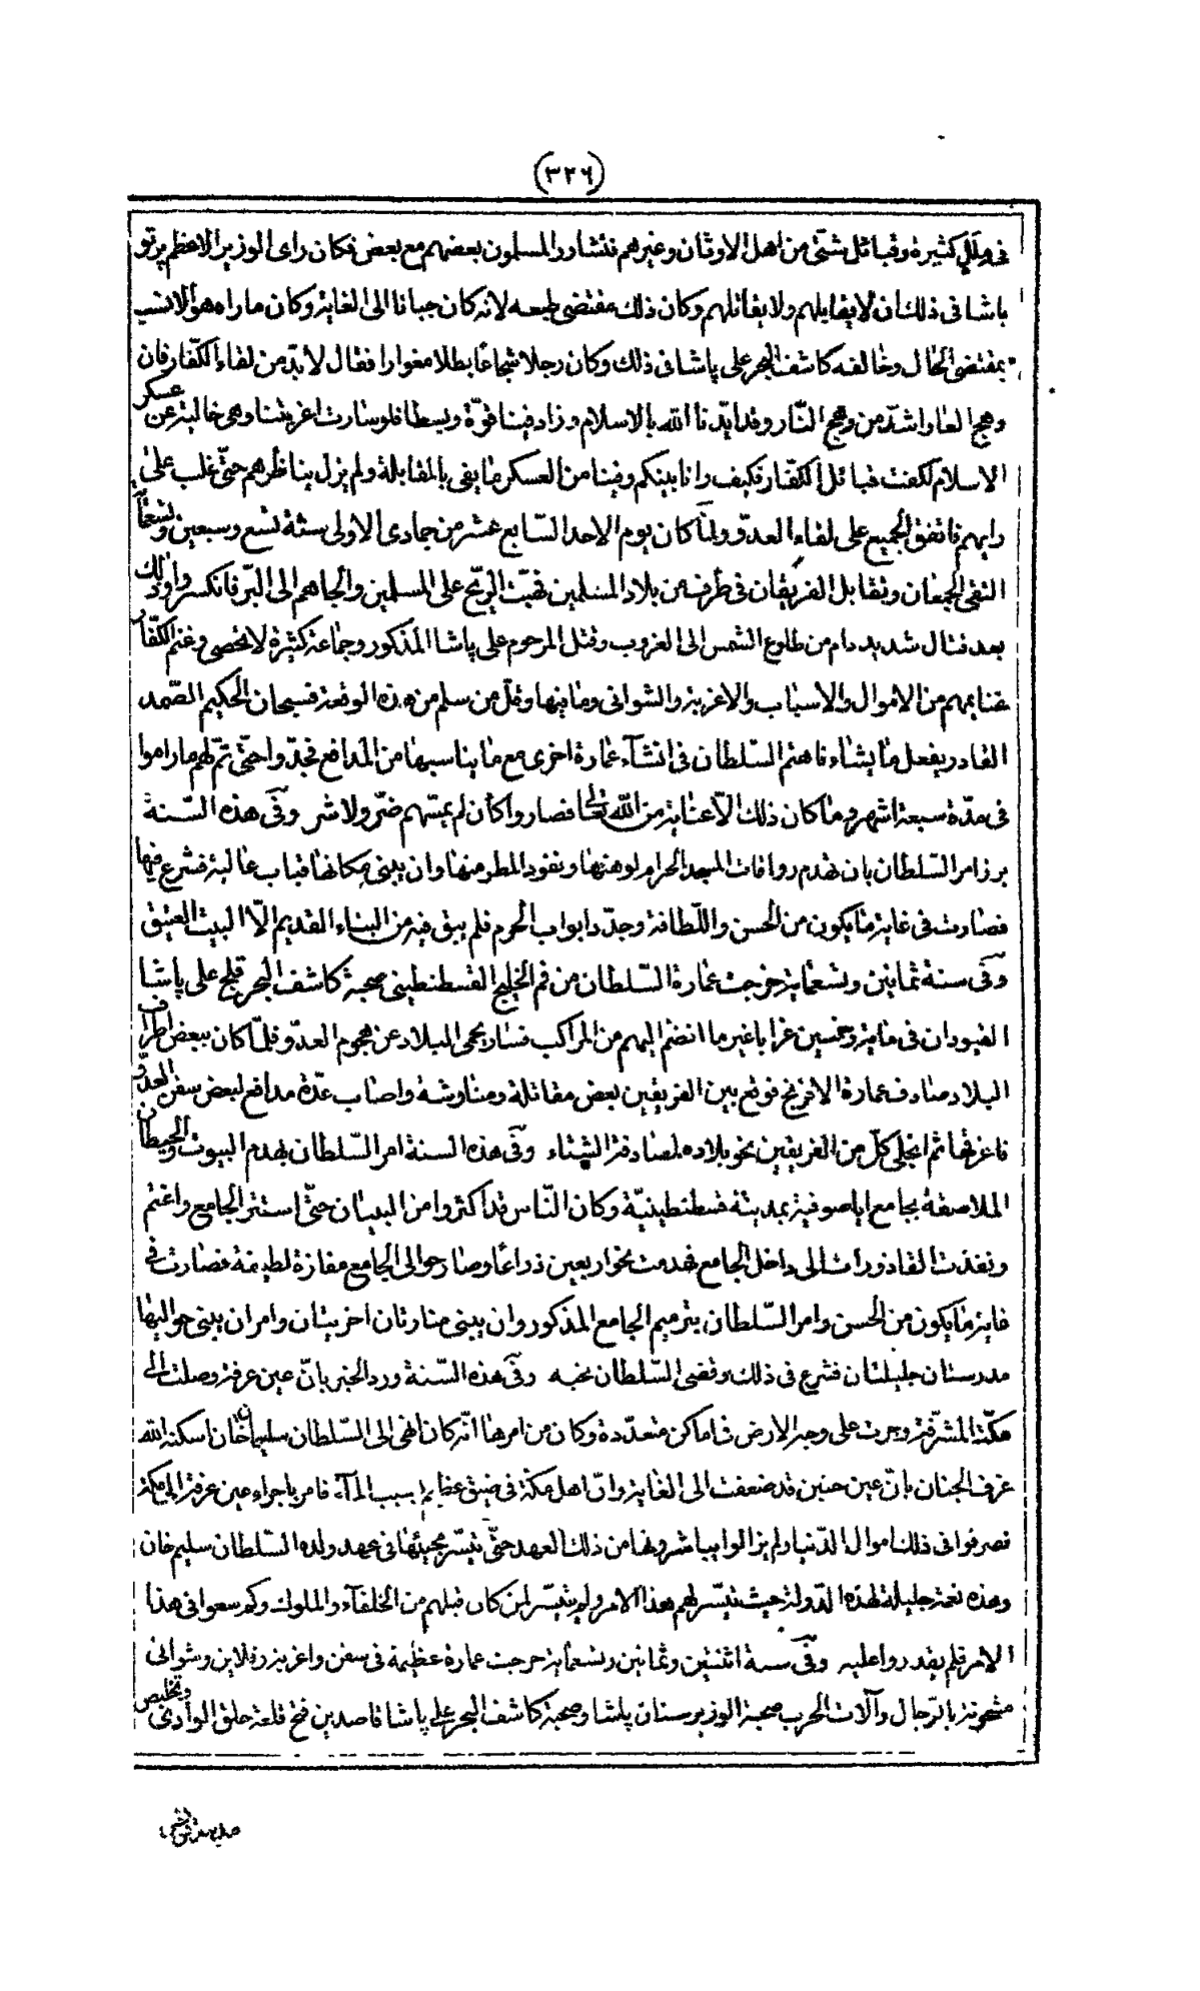 (٣٢٦)
فى ملل كثيرة وقبائل شتى من اهل الاوثان وغيرهم فتشاور المسلمون بعضهم مع بعض فكان راى الوزير الاعظم پرتو
باشا فى ذلك ان لا يقابلهم ولا يقاتلهم وكان ذلك مقتضى طبعه لانه كان جبانا الى الغاية وكان ما راه هو الانسب
بمقتضى الحال وخالفه كاشف البحر على پاشا فى ذلك وكان رجلا شجاعا بطلا مغوارا فقال لا بدّ من لقاء الكفّار فان
وهج العار اشدّ من وهج النّار وقد ايّدنا الله بالاسلام وزاد فينا قوّة وبسطا فلو سارت اغربتنا وهى خالية عن عسكر
الاسلام لكفت قبائل الكفّار فكيف وانا بينكم وفينا من العسكر ما يفى بالمقابلة ولم يزل يناظرهم حتى غلب على
رايهم فاتفق الجميع على لقاء العدوّ ولمّا كان يوم الاحد السّابع عشر من جمادى الاولى سنة تسع وسبعين وتسعمأية
التقى الجمعان وتقابل الفريقان فى طرف من بلاد المسلمين فهبّت الرّيح على المسلمين والجاهم الى البرّ فانكسروا وذلك
بعد قتال شديد دام من طلوع الشمس الى الغروب وقتل المرحوم على پاشا المذكور وجماعة كثيرة لا تحصى وغنم الكفّار
غنايمهم من الاموال والاسباب والاغربة والشوانى وما فيها وقلّ من سلم من هذه الوقعة فسبحان الحكيم الصّمد
القادر يفعل ما يشاء فاهتم السّلطان فى انشآء عمارة اخرى مع ما يناسبها من المدافع فجدّوا حتّى تمّ لهم ما راموا
فى مدّة سبعة اشهر وما كان ذلك الّا عناية من الله تعالى فصاروا كأن لم يمسّهم ضرّ ولا شر وفى هذه السّنة
برز امر السّلطان بان تهدم رواقات المسجد الحرام لوهنها ونفوذ المطر منها وان يبنى مكانها قباب عالية فشرع فيها
فصارت فى غاية ما يكون من الحسن واللّطافة وجدّد ابواب الحرم فلم يبق فيه من البناء القديم الّا البيت العتيق
وفى سنة ثمانين وتسعمأية خرجت عمارة السّلطان من فم الخليج القسطنطينى صحبة كاشف البحر قلج على پاشا
القبودان فى ماية وخمسين غرابا غير ما انضم اليهم من المراكب فسار يحمى البلاد عن هجوم العدوّ فلمّا كان ببعض اطراف
البلاد صادف عمارة الافرنج فوقع بين الفريقين بعض مقاتلة ومناوشة واصاب عدّة مدافع لبعض سفن العدوّ
فاغرقها ثم انجلى كلّ من الفريقين نحو بلاده لمصادفة الشتاء وفى هذه السنة امر السّلطان بهدم البيوت والحيطان
الملاصقة بجامع اياصوفية بمدينة قسطنطينيّة وكان النّاس قد اكثروا من البنيان حتّى استتر الجامع واغتم
ونفذت القاذورات الى داخل الجامع فهدمت نحو اربعين ذراعا وصار حوالى الجامع مفازة لطيفة فصارت فى
غاية ما يكون من الحسن وامر السّلطان بترميم الجامع المذكور وان يبنى منارتان اخريتان وامر ان يبنى حواليها
مدرستان جليلتان فشرع فى ذلك وقضى السّلطان نحبه وفى هذه السّنة ورد الخبر بانّ عين عرفة وصلت الى
مكّة المشرّفة وجرت على وجه الارض فى اماكن متعدّدة وكان من امرها انّه كان انهى الى السّلطان سليمان خان اسكنه الله
غرف الجنان بانّ عين حنين قد ضعفت الى الغاية وانّ اهل مكة فى ضيق عظيم بسبب المآء فامر باجراء عين عرفة الى مكة
فصرفوا فى ذلك اموال الدّنيا ولم يزالوا يباشرونها من ذلك العهد حتّى تيسّر مجيئها فى عهد ولده السّلطان سليم خان
وهذه نعمة جليلة لهذه الدّولة حيث تيسّر لهم هذا الامر ولم تتيسّر لمن كان قبلهم من الخلفآء والملوك وكم سعوا فى هذا
الامر فلم يقدروا عليه وفى سنة اثنتين وثمانين وتسعمأية خرجت عمارة عظيمة فى سفن واغربة وقلاين وشوانى
مشحونة بالرّجال وآلات الحرب صحبة الوزير سنان پاشا وصحبة كاشف البحر على پاشا قاصدين فتح قلعة حلق الوادى وتخليص
مدينة تونس